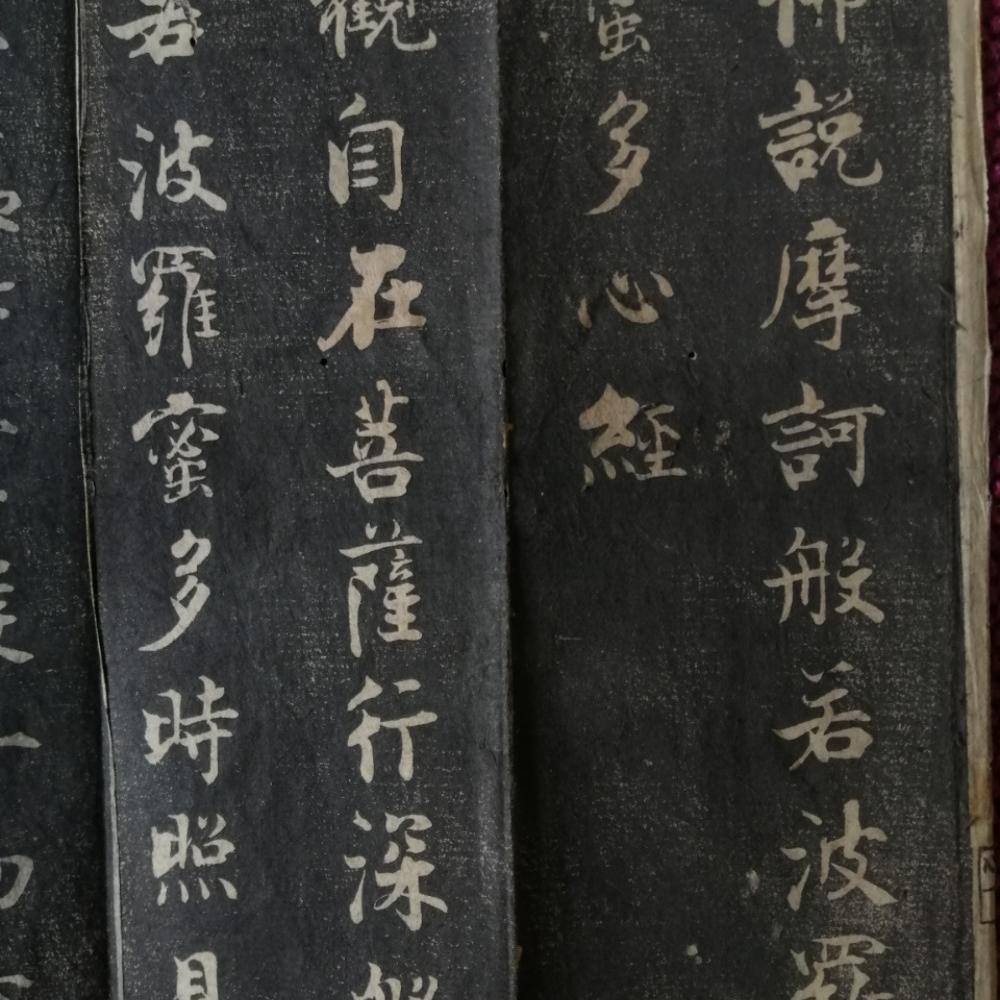 佛說摩訶般若波羅
蜜多心經
觀自在菩薩行深般
若波羅蜜多時照見